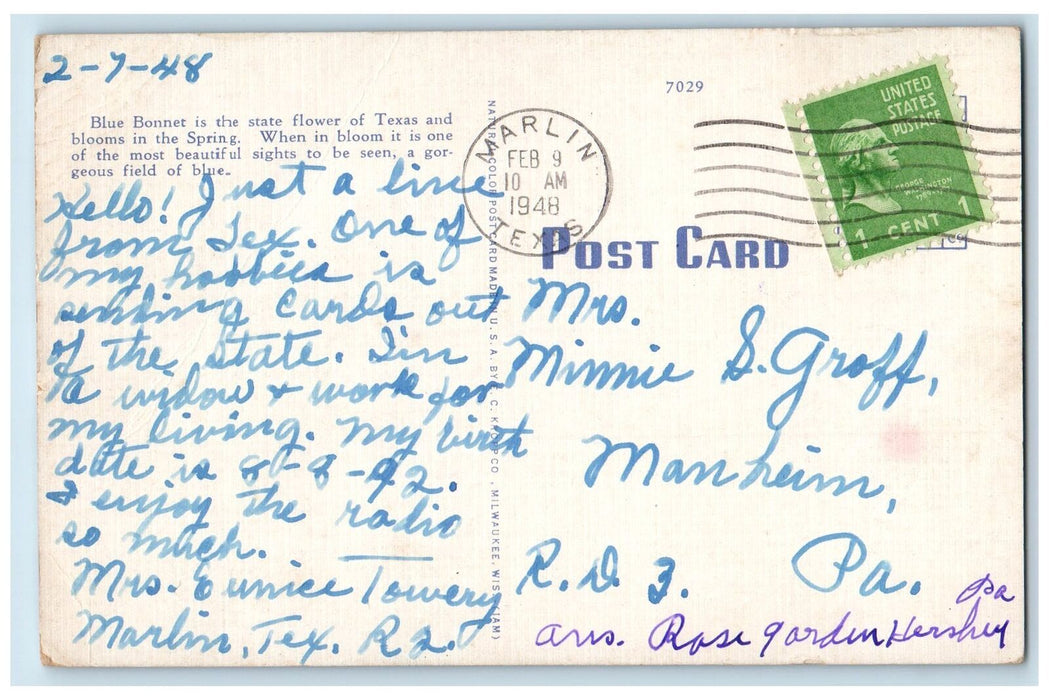 2-7-48
Blue Bonnet is the state flower of Texas and
blooms in the Spring. When in bloom it is one
of the most beautiful sights to be seen, a gor-
geous field of blue.
Hello! Just a line
from Tex. One of
my hobbies is
sending cards out
of the state. I'm
a widow + work for
my living. My birth
date is 8-8-92.
I enjoy the radio
so much.
Mrs. Eunice Towery
Marlin, Tex. R2.
NATURAL COLOR POST CARD MADE IN U.S.A. BY E. C. KROPP CO., MILWAUKEE, WIS. (JAM)
7029
MARLIN
FEB 9
10 AM
1948
TEXAS
UNITED
STATES
POSTAGE
GEORGE
WASHINGTON
1 CENT 1
POST CARD
Mrs.
Minnie S. Groff,
Manheim,
R.D. 3. Pa.
ans. Rose garden Hershey
Pa